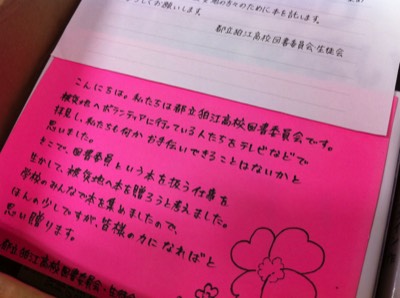 のために本を託します。
ろしくお願いします。
都立狛江高校図書委員会・生徒会
こんにちは。私たちは都立狛江高校図書委員会です。
被災地へボランティアに行っている人たちをテレビなどで
拝見し、私たちも何かお手伝いできることはないかと
思いました。
そこで、図書委員という本を扱う仕事を
生かして、被災地へ本を贈ろうと考えました。
学校のみんなで本を集めましたので、
ほんの少しですが、皆様の力になればと
思い贈ります。
都立狛江高校図書委員会・生徒会